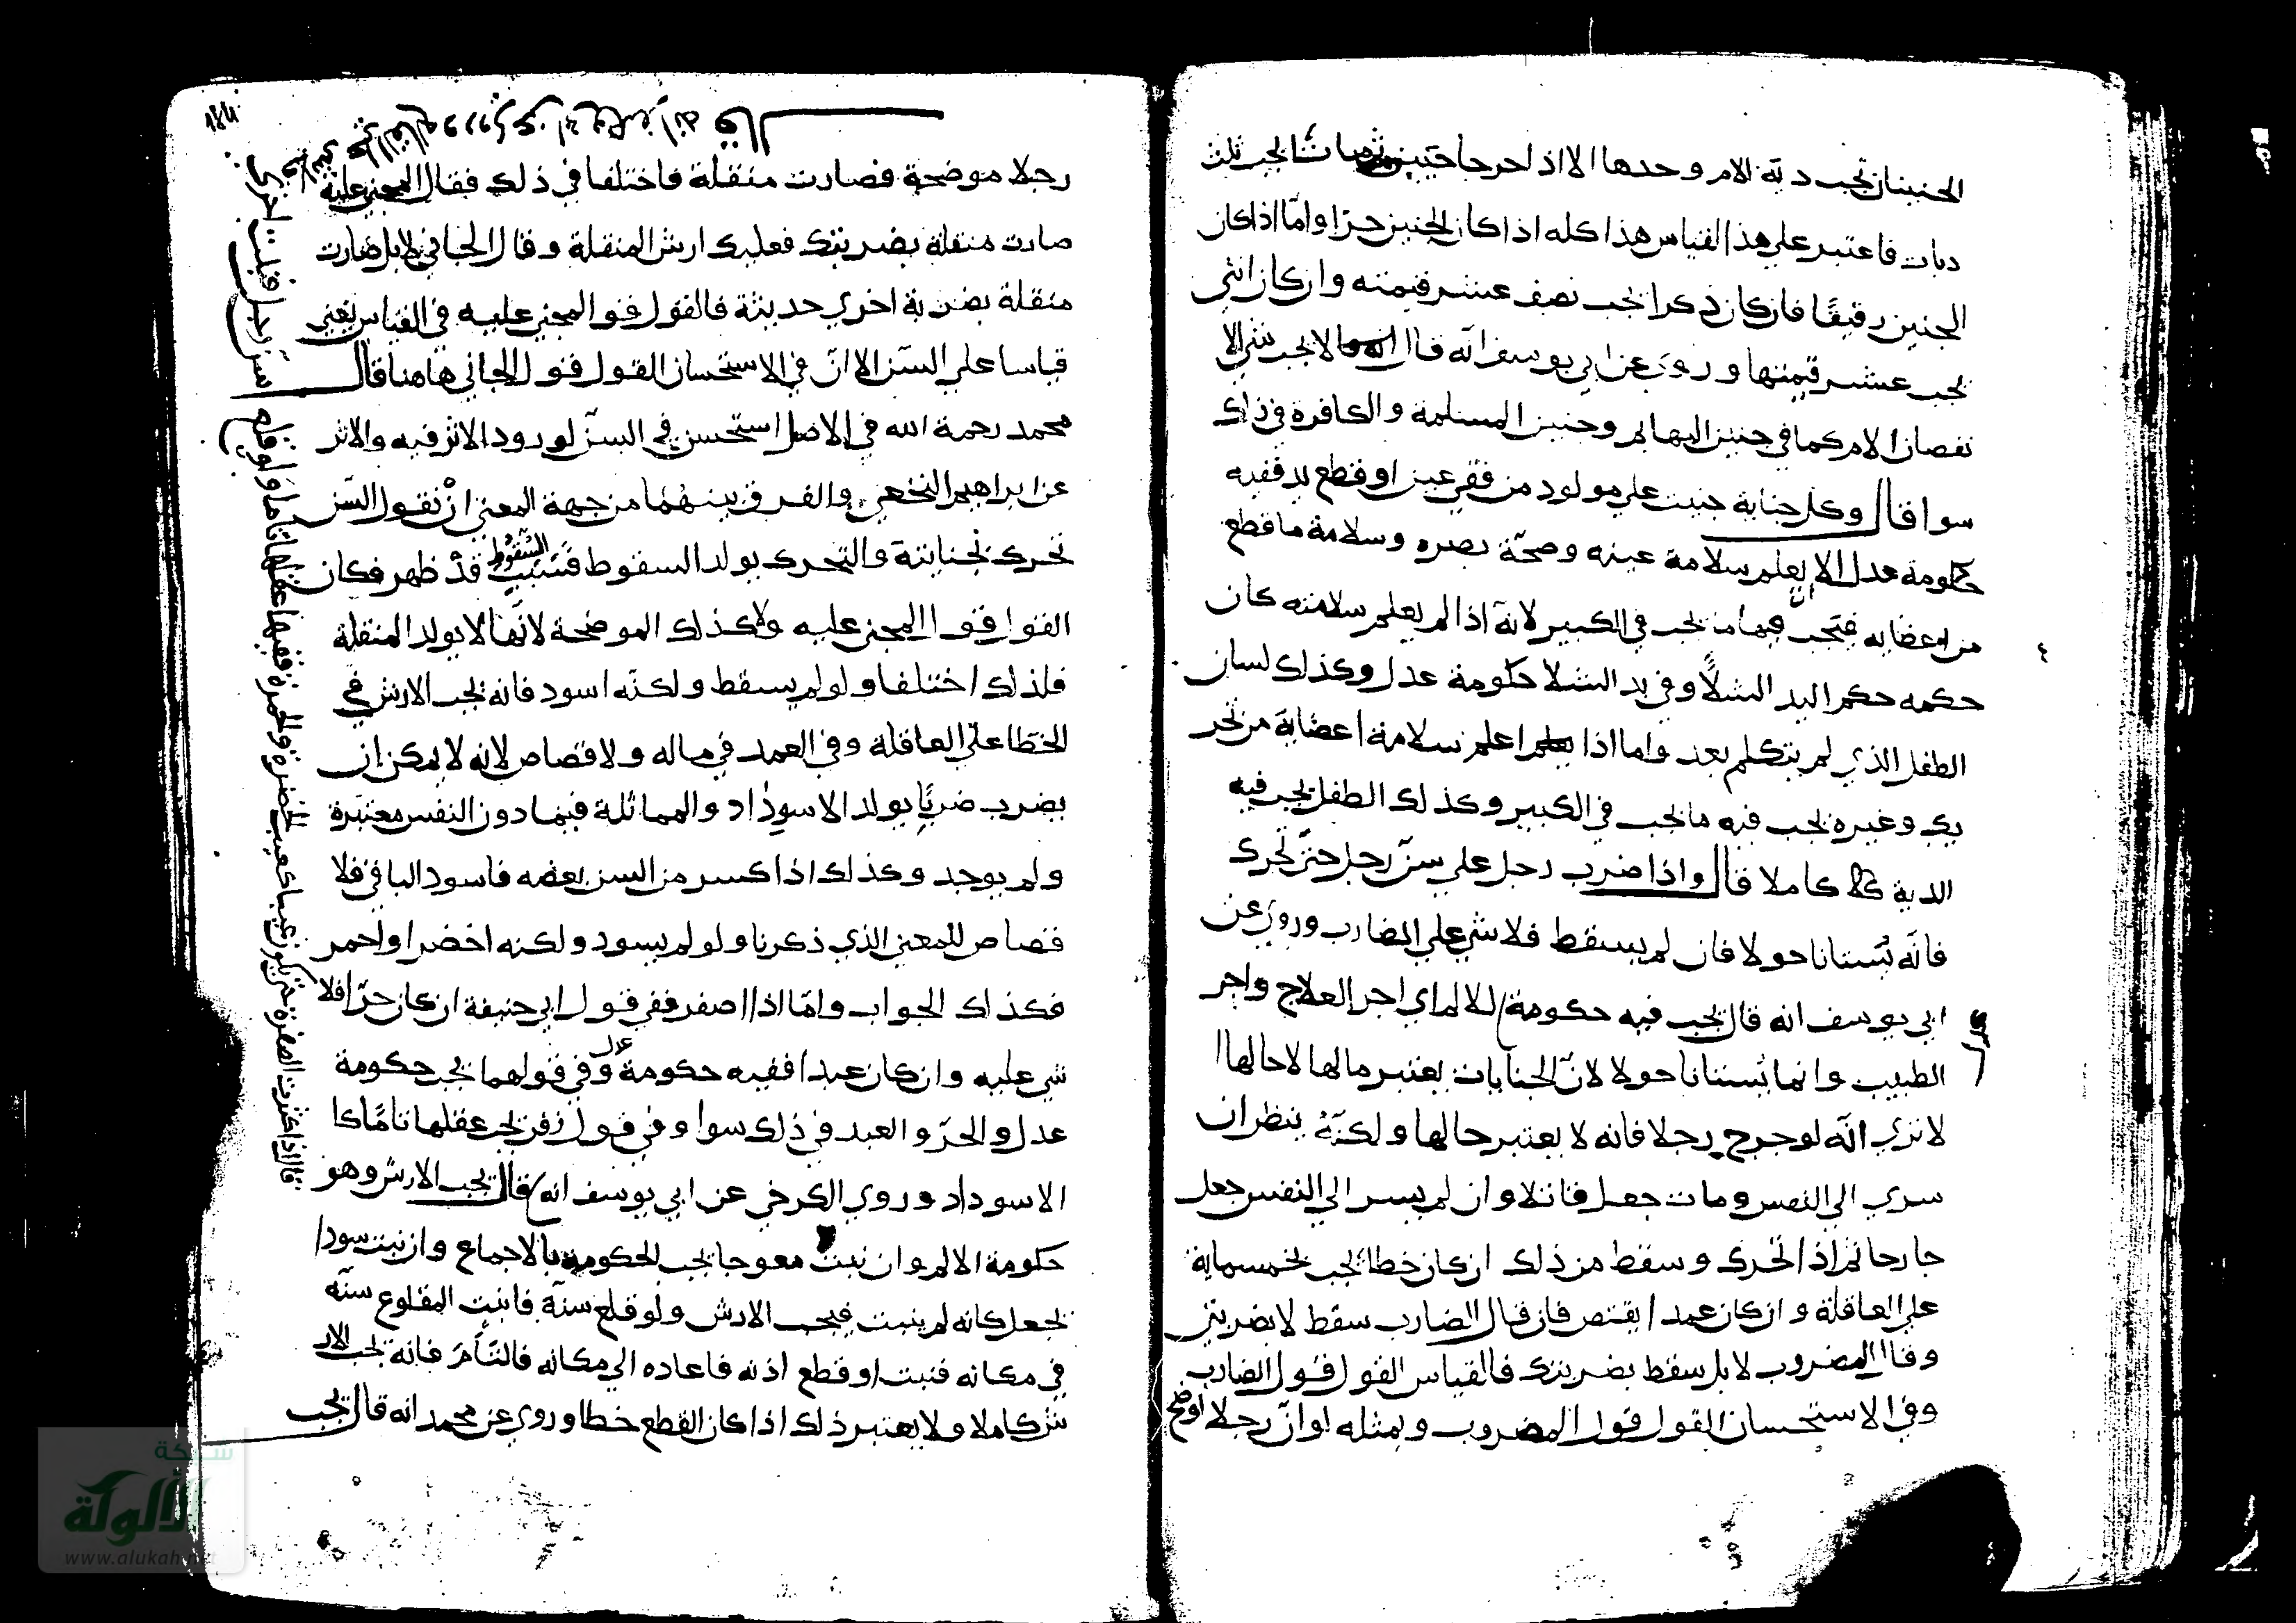 الجنينان تجب دية الام وحدها الا اذا خرجا حيين ثم ماتا يجب ثلث
ديات فاعتبر علي هذا القياس هذا كله اذا كان الجنين حرا واما اذا كان
الجنين رقيقا فان كان ذكرا يجب نصف عشر قيمته وان كان انثي
يجب عشر قيمتها وروي عن ابي يوسف انه قال لا يجب شي الا
نقصان الام كما في جنين البهايم وجنين المسلمة والكافرة في ذلك
سوا قال وكل جناية جنيت علي مولود من فقي عين او قطع يد ففيه
حكومة عدل الا ان يعلم سلامة عينه وصحة بصره وسلامة ما قطع
من اعضايه فتجب فيها ما يجب في الكبير لانه اذا لم يعلم سلامته كان
حكمه حكم اليد الشلا وفي يد الشلا حكومة عدل وكذلك لسان
الطفل الذي لم يتكلم بعد واما اذا علم سلامة اعضاية من تحر
يك وغيره يجب فيه ما يجب في الكبير وكذلك الطفل يجب فيه
الدية كاملا قال واذا ضرب رجل علي سن رجل حتي تحرك
فانه يستانا حولا فان لم يسقط فلا شي علي الضارب وروي عن
ابي يوسف انه قال يجب فيه حكومة للالم اي اجر العلاج واجر
الطبيب وانما يستانا حولا لان الجنايات يعتبر مالها لا حالها ا
لا تري انه لو جرح رجلا فانه لا يعتبر حالها ولكنه ينظر ان
سري الي النفس ومات جعل قاتلا وان لم يسر الي النفس جعل
جارحا ثم اذا تحرك وسقط من ذلك ان كان خطا يجب خمسماية
علي العاقلة وان كان عمدا يقتص فان قال الضارب سقط لا بضربتي
وقال المضروب لا بل سقط بضربتك فالقياس القول قول الضارب
وفي الاستحسان القول قول المضروب وبمثله لو ان رجلا اوضح
رجلا موضحة فصارت منقلة فاختلفا في ذلك فقال المجني عليه
صارت منقلة بضربتك فعليك ارش المنقلة وقال الجاني لا بل صارت
منقلة بضربة اخري حديثة فالقول قول المجني عليه في القياس يعني
قياسا علي السن الا ان في الاستحسان القول قول الجاني هاهنا قال
محمد رحمة الله في الاصل استحسن في السن لورود الاثر فيه والاثر
عن ابراهيم النخعي والفرق بينهما من جهة المعني ان نقول السن
تحرك بجنايتة والتحرك يولد السقوط فسبب السقوط قد ظهر فكان
القول قول المجني عليه ولا كذلك الموضحة لانها لا يولد المنقلة
فلذلك اختلفا ولو لم يسقط ولكنه اسود فانه يجب الارش في
الخطا علي العاقلة وفي العمد في ماله ولا قصاص لانه لا يمكن ان
يضرب ضربا يولد الاسوداد والمماثلة فيما دون النفس معتبرة
ولم يوجد وكذلك اذا كسر من السن بعضه فاسود الباقي فلا
قصاص للمعني الذي ذكرنا ولو لم يسود ولكنه اخضر او احمر
فكذلك الجواب واما اذا اصفر ففي قول ابي حنيفة ان كان حرا فلا
شي عليه وان كان عبدا ففيه حكومة عدل وفي قولهما يجب حكومة
عدل والحر والعبد في ذلك سوا وفي قول زفر يجب عقلها تاما كا
الاسوداد وروي الكرخي عن ابي يوسف انه قال يجب الارش وهو
حكومة الالم وان نبت معوجا يجب الحكومة بالاجماع وان نبت سودا
يجعل كانه لم ينبت فيجب الارش ولو قلع سنه فانبت المقلوع سنه
في مكانه فنبت او قطع اذنه فاعاده الي مكانه فالتأم فانه يجب الار
ش كاملا ولا يعتبر ذلك اذا كان القطع خطا وروي عن محمد انه قال يجب